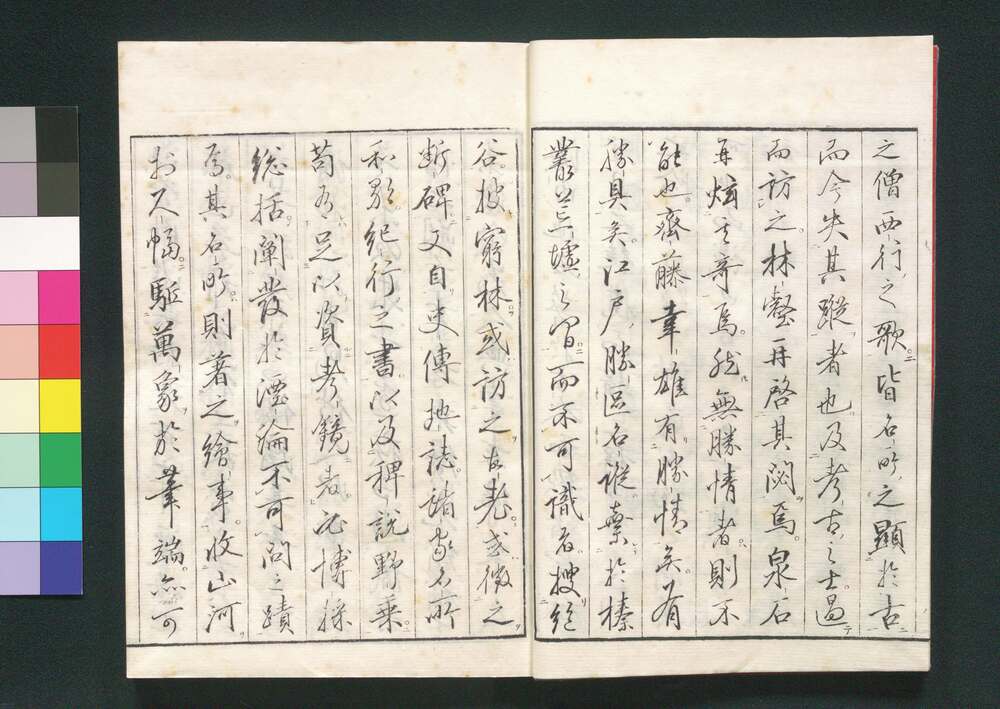 之僧西行之歌皆名所之顯於古
而今失其蹤者也及考古之士過
而訪之林壑再啓其閟焉泉石
再炫其奇焉然無勝情者則不
能也齋藤幸雄有勝情矣有
勝具矣江戶勝區名蹤蘂於榛
叢丘墟之間而不可識者搜絕
谷披窮林或訪之古老或徵之
斷碑又自史傳地誌諸家名所
和歌紀行之書以及稗說野乘
苟有足以資考鏡者況博採
總括闡發於湮淪不可問之蹟
焉其名所則著之繪事收山河
於尺幅驅萬象於筆端亦可